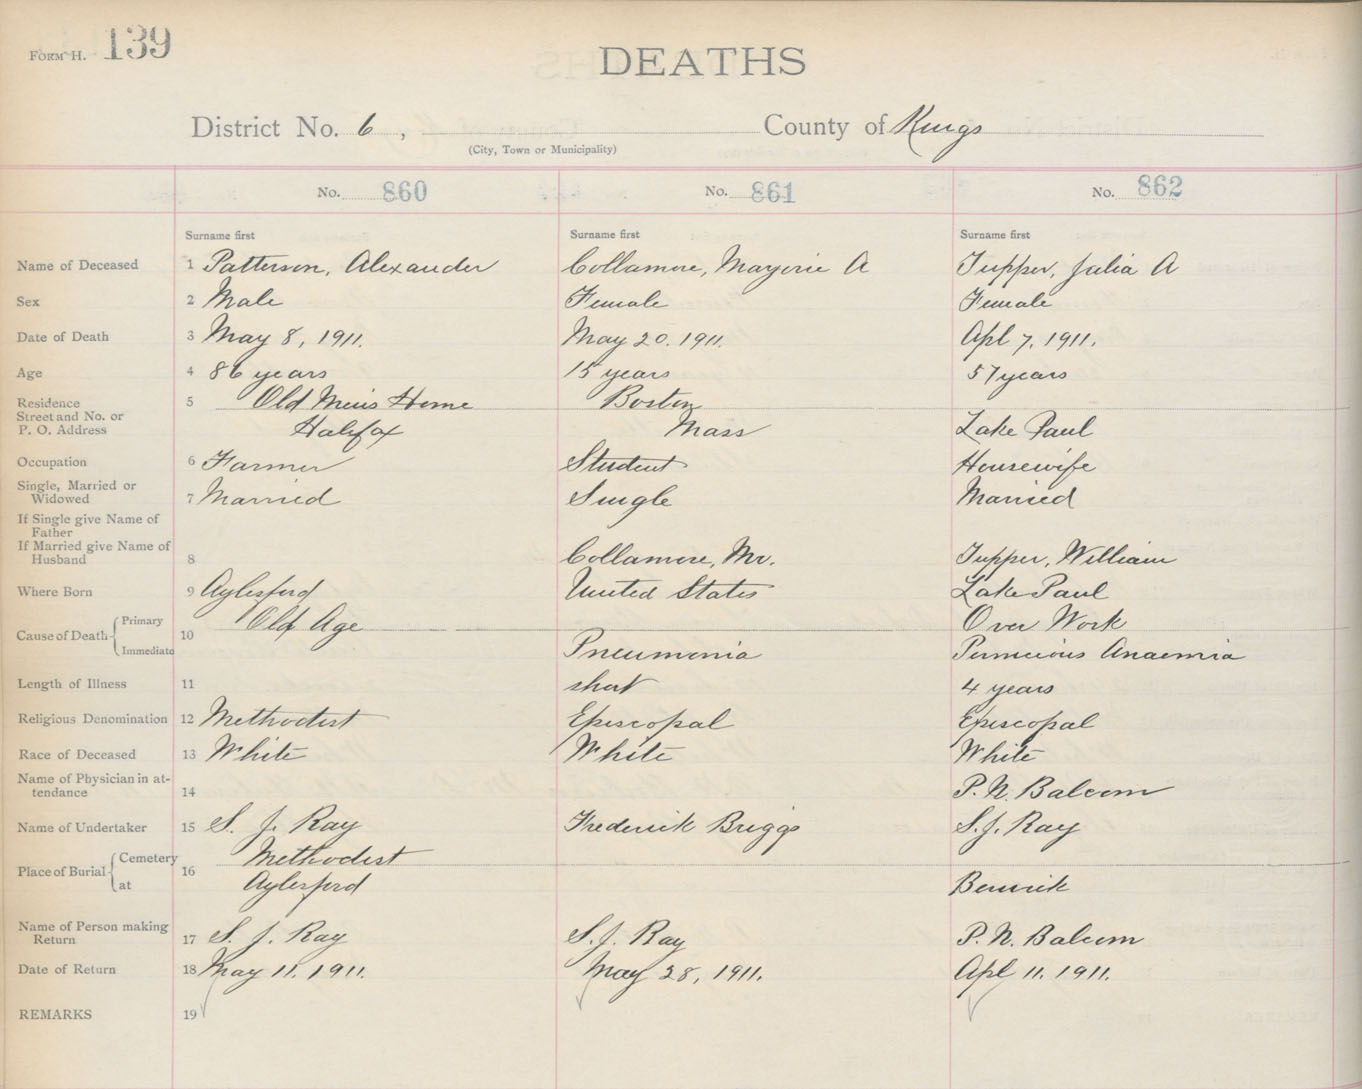 FORM H. 139
DEATHS
District No. 6, County of Kings
(City, Town or Municipality)
No. 860 No. 861 No. 862
Surname first Surname first Surname first
Name of Deceased 1 Patterson, Alexander Collamore, Marjorie A Tupper, Julia A
Sex 2 Male Female Female
Date of Death 3 May 8, 1911. May 20. 1911. Apl 7, 1911.
Age 4 86 years 15 years 57 years
Residence 5 Old Mens Home Boston
Street and No. or
P. O. Address Halifax Mass Lake Paul
Occupation 6 Farmer Student Housewife
Single, Married or
Widowed 7 Married Single Married
If Single give Name of
Father
If Married give Name of
Husband 8 Collamore, Mr. Tupper, William
Where Born 9 Aylesford United States Lake Paul
Cause of Death Primary 10 Old Age Over Work
Immediate Pneumonia Pernicious Anaemia
Length of Illness 11 short 4 years
Religious Denomination 12 Methodist Episcopal Episcopal
Race of Deceased 13 White White White
Name of Physician in at-
tendance 14 P. N. Balcom
Name of Undertaker 15 S. J. Ray Frederick Briggs S. J. Ray
Place of Burial Cemetery 16 Methodist
at Aylesford Berwick
Name of Person making
Return 17 S. J. Ray S. J. Ray P. N. Balcom
Date of Return 18 May 11. 1911. May 28, 1911. Apl 11. 1911.
REMARKS 19